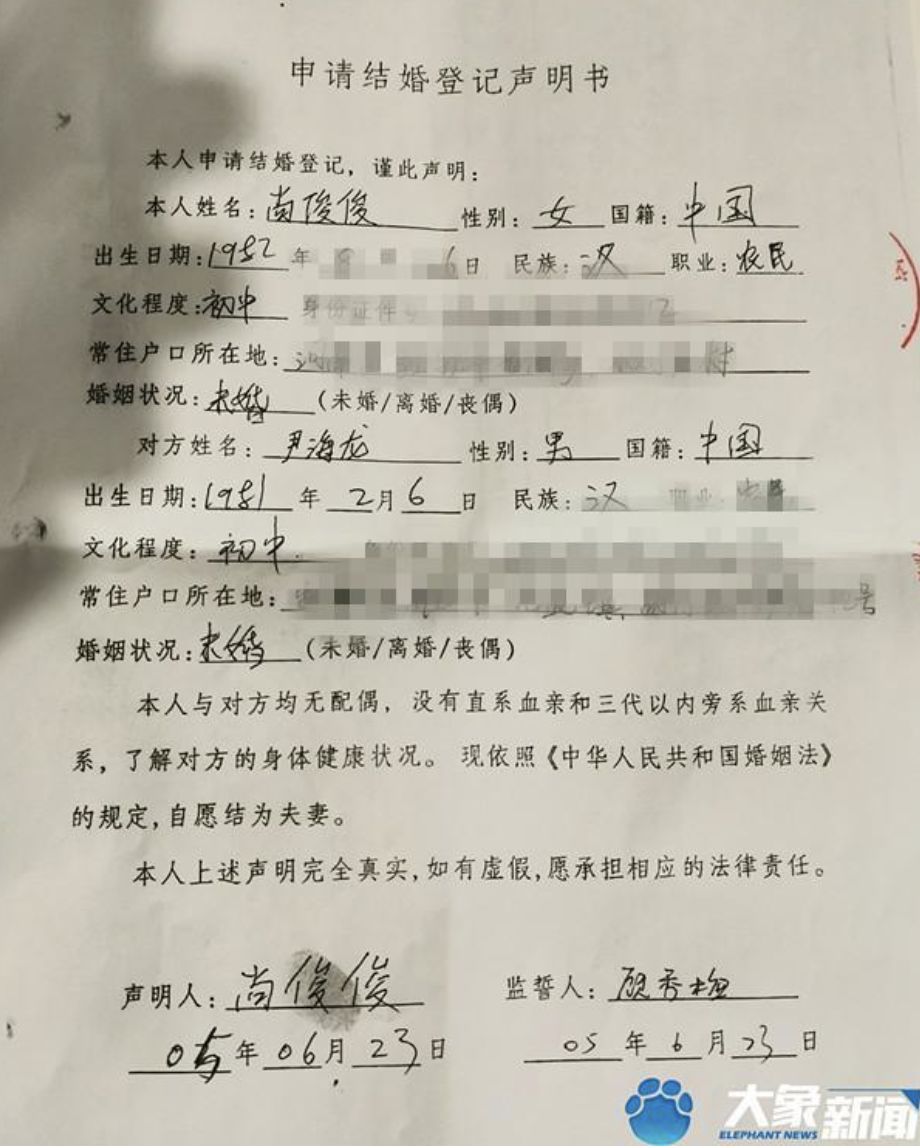 申请结婚登记声明书
本人申请结婚登记，谨此声明：
本人姓名：尚俊俊 性别：女 国籍：中国
出生日期：1982年 6日 民族：汉 职业：农民
文化程度：初中 身份证件 12
常住户口所在地： 村
婚姻状况：未婚（未婚/离婚/丧偶）
对方姓名：尹海龙 性别：男 国籍：中国
出生日期：1981年2月6日 民族：汉 职业：农
文化程度：初中
常住户口所在地： 号
婚姻状况：未婚（未婚/离婚/丧偶）
本人与对方均无配偶，没有直系血亲和三代以内旁系血亲关
系，了解对方的身体健康状况。现依照《中华人民共和国婚姻法》
的规定，自愿结为夫妻。
本人上述声明完全真实，如有虚假，愿承担相应的法律责任。
声明人：尚俊俊 监誓人：顾秀梅
05年06月23日 05年6月23日
大象新闻
ELEPHANT NEWS